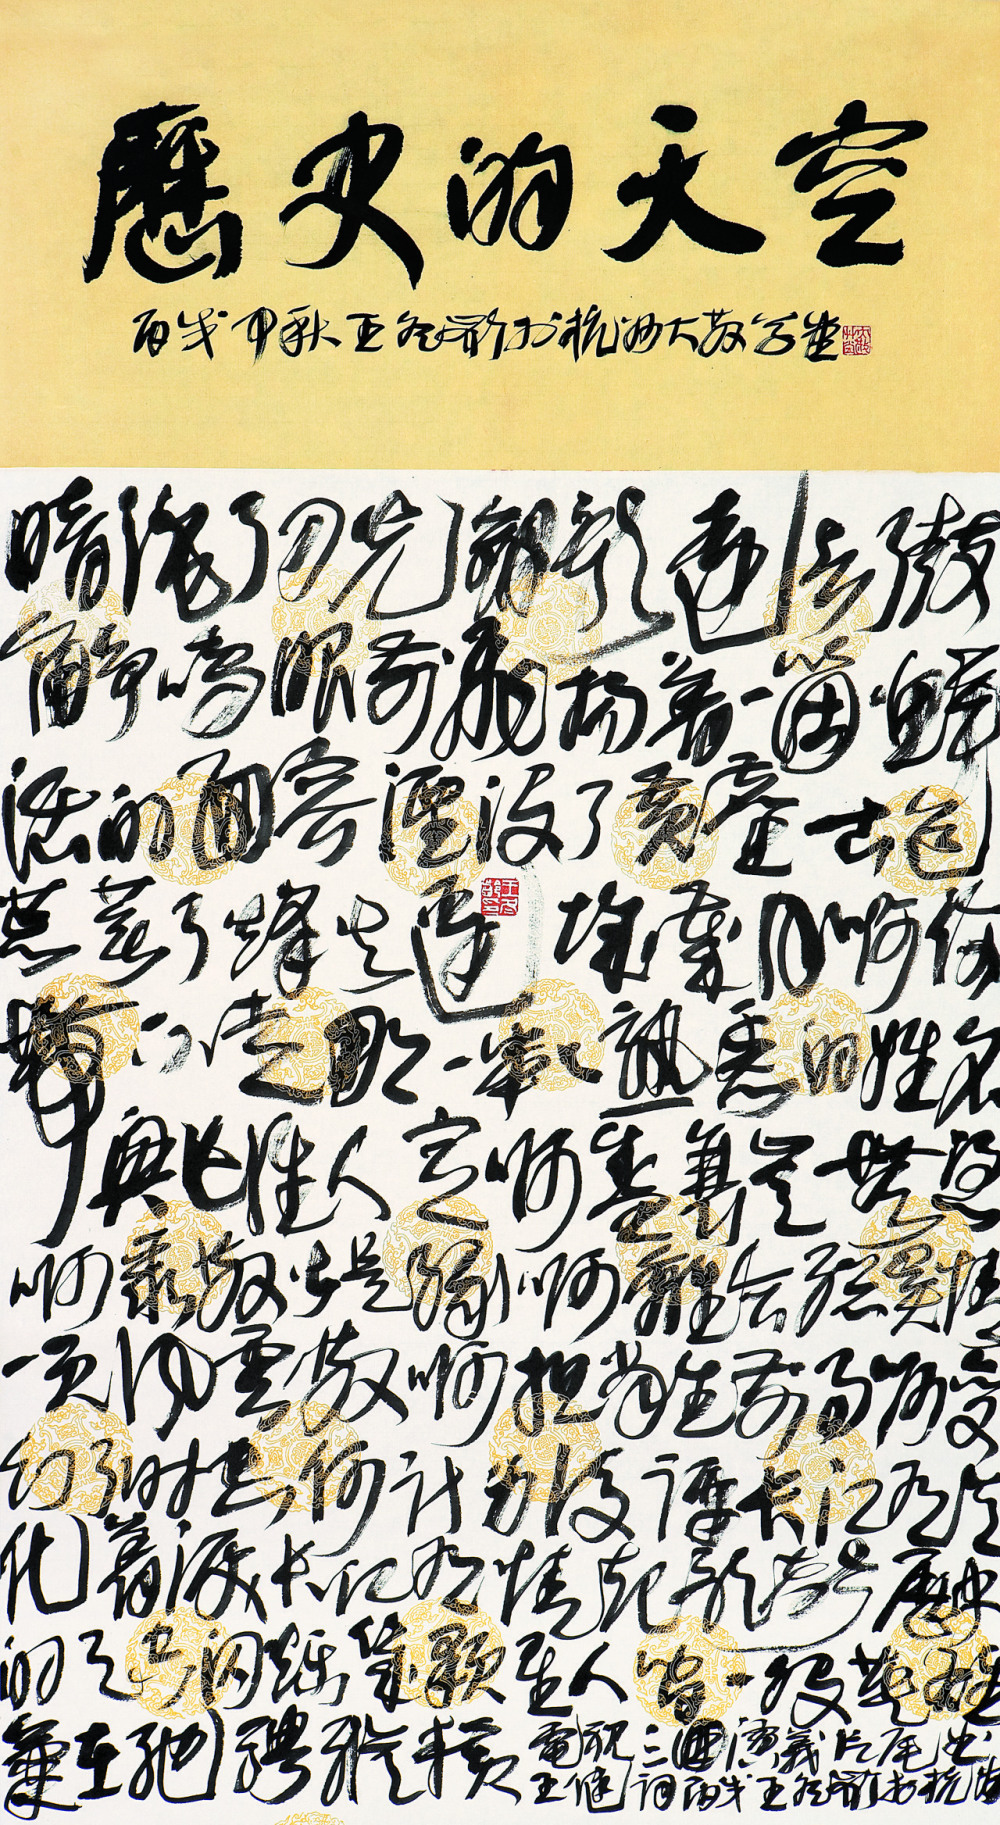 歷史的天空
丙戌中秋王冬齡於杭州大散草堂
暗淡了刀光劍影遠去了鼓
角錚鳴眼前飛揚着一個個鮮
活的面容湮沒了黃塵古道
荒蕪了烽火邊城歲月啊你
帶不走那一串串熟悉的姓名
興亡誰人定啊盛衰豈無憑
啊聚散皆是緣啊離合總關情
一頁風雲散啊担當生前事啊變
幻了時空何計身後評長江有意
化着淚長江有情起歌聲歷史
的天空閃爍幾顆星人間一股英雄
氣在馳騁縱橫
電視三國演義片尾曲
王健詞丙戌王冬齡於杭州